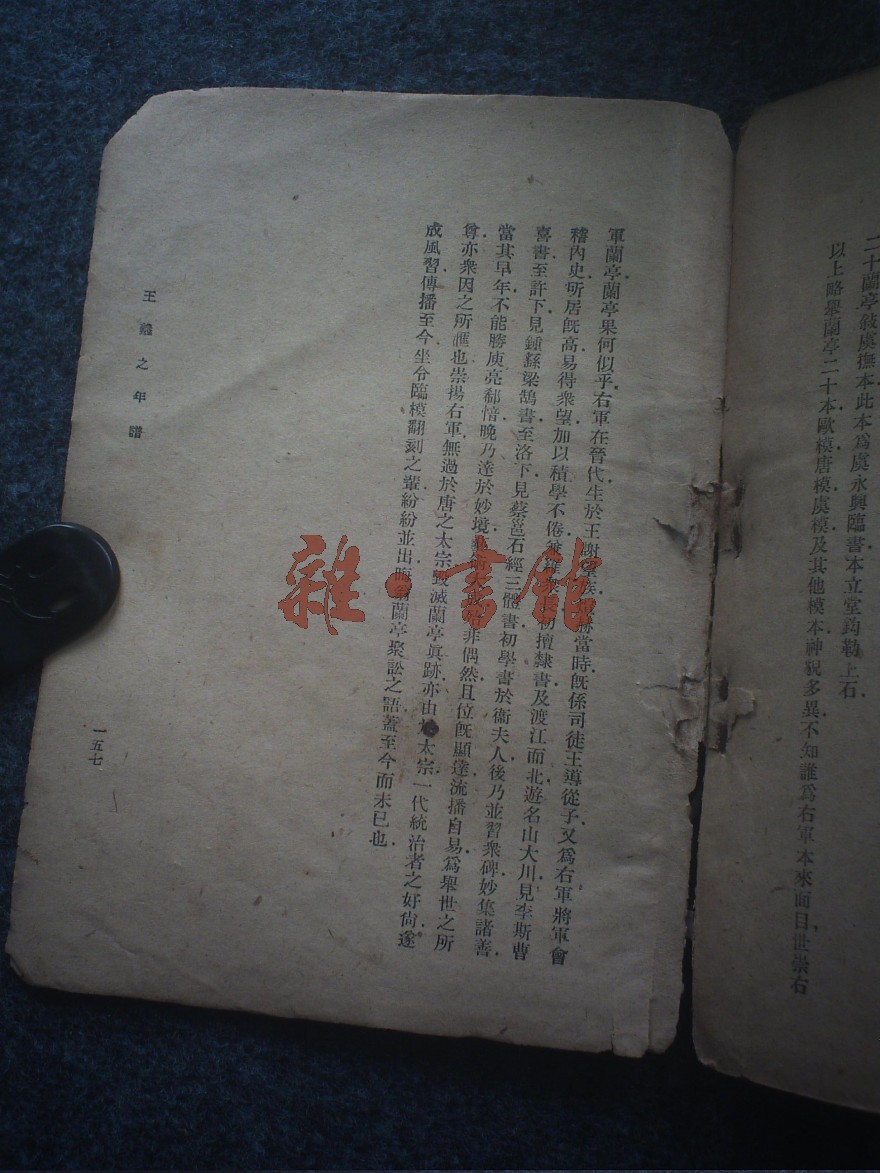 二十蘭亭敍虞撫本此本爲虞永興臨書本立堂鈎勒上石
以上略舉蘭亭二十本歐模唐模虞模及其他模本神貌多異不知誰爲右軍本來面目世崇右
軍蘭亭蘭亭果何似乎右軍在晉代生於王謝望族 當時旣係司徒王導從子又爲右軍將軍會
稽內史所居旣高易得衆望加以積學不倦 初擅隸書及渡江而北遊名山大川見李斯曹
喜書至許下見鍾繇梁鵠書至洛下見蔡邕石經三體書初學書於衞夫人後乃並習衆碑妙集諸善
當其早年不能勝庾亮郗愔晚乃達於妙境 非偶然且位旣顯達流播自易爲舉世之所
尊亦衆因之所匯也崇揚右軍無過於唐之太宗毀滅蘭亭眞跡亦由 太宗一代統治者之好尙遂
成風習傳播至今坐令臨模翻刻之輩紛紛並出 蘭亭聚訟之語蓋至今而未已也
王羲之年譜
一五七
雜·書館